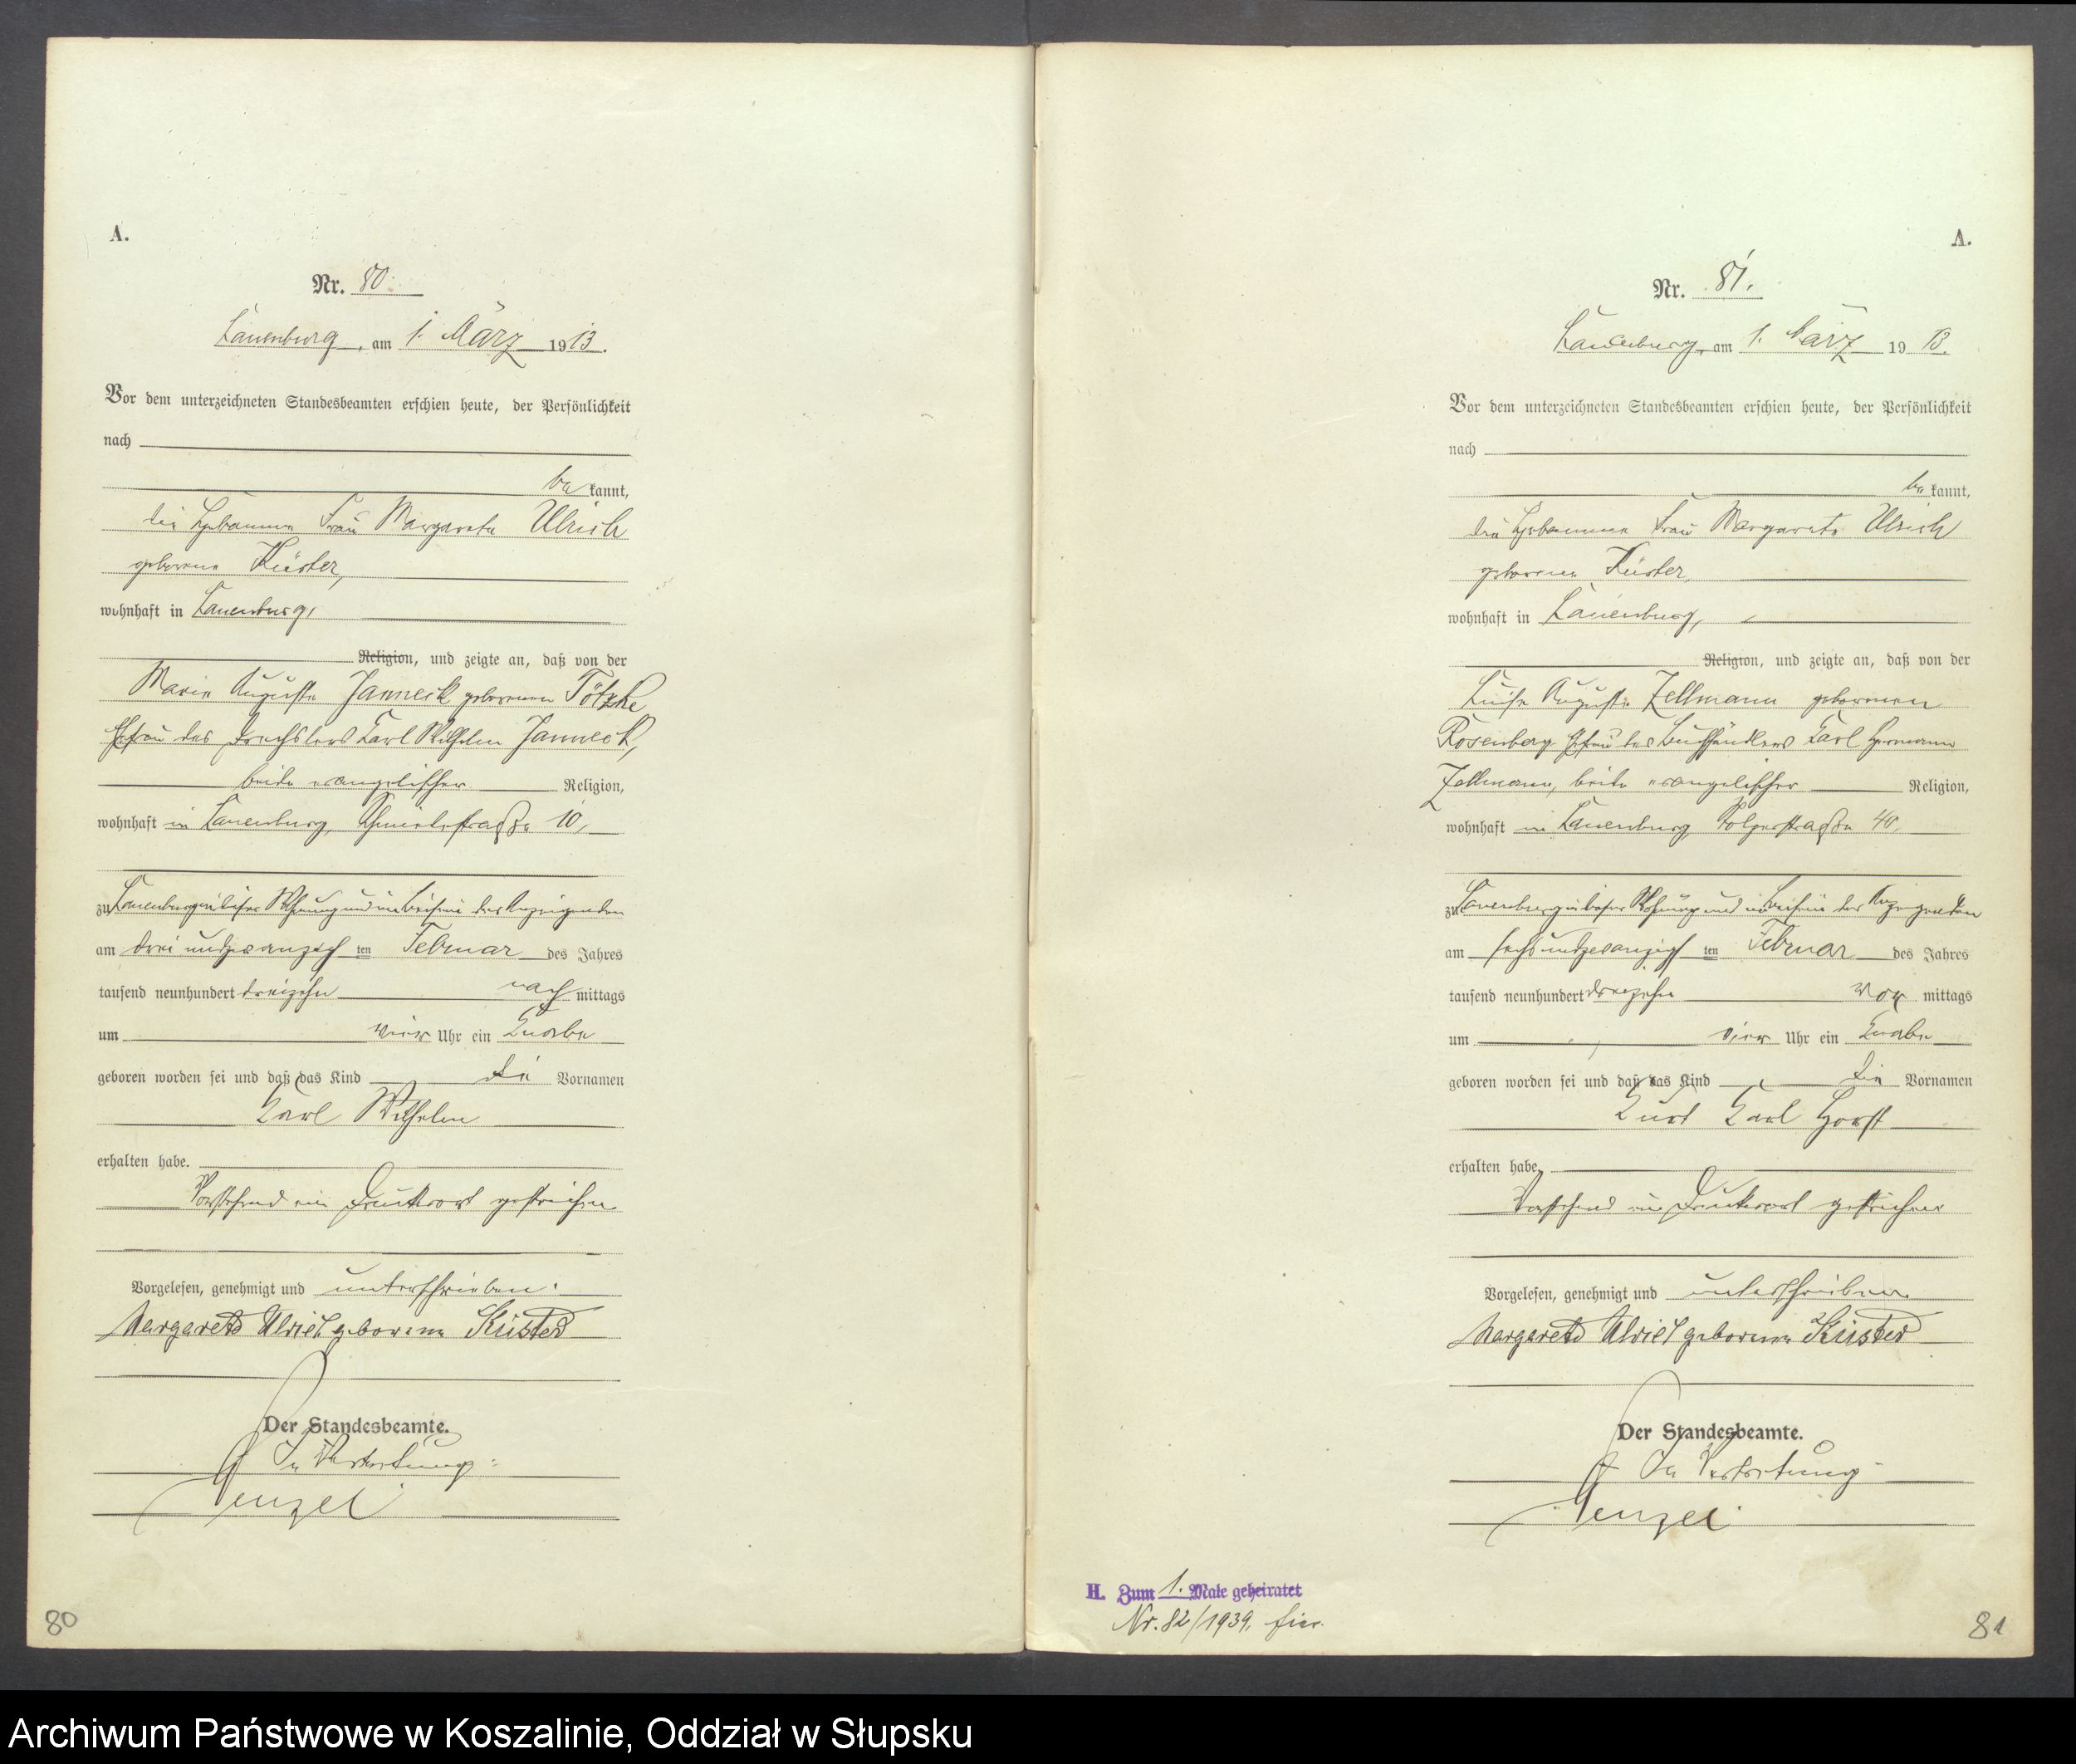 A.
Nr. 80.
Lauenburg, am 1. März 1913.
Vor dem unterzeichneten Standesbeamten erschien heute, der Persönlichkeit
nach
be kannt,
die Hebamme Frau Margarete Ulrich
geborene Küster,
wohnhaft in Lauenburg,
Religion, und zeigte an, daß von der
Marie Auguste Janneck geborenen Tötzke
Ehefrau des Drechslers Karl Wilhelm Janneck,
beide evangelischer Religion,
wohnhaft in Lauenburg, 10,
zu Lauenburg in dieser Wohnung und im Beisein der Anzeigenden
am dreiundzwanzigsten Februar des Jahres
tausend neunhundert dreizehn nach mittags
um vier Uhr ein Knabe
geboren worden sei und daß das Kind die Vornamen
Karl Wilhelm
erhalten habe.
Vorstehend ein Druckwort gestrichen.
Vorgelesen, genehmigt und unterschrieben:
Margarete Ulrich geborene Küster
Der Standesbeamte.
In Vertretung:
80
A.
Nr. 81.
Lauenburg, am 1. März 1913.
Vor dem unterzeichneten Standesbeamten erschien heute, der Persönlichkeit
nach
be kannt,
die Hebamme Frau Margarete Ulrich
geborene Küster,
wohnhaft in Lauenburg,
Religion, und zeigte an, daß von der
Luise Auguste Zellmann geborenen
Rosenberg Ehefrau des Buchhändlers Karl Hermann
Zellmann, beide evangelischer Religion,
wohnhaft in Lauenburg, 40,
zu Lauenburg in dieser Wohnung und im Beisein der Anzeigenden
am sechsundzwanzigsten Februar des Jahres
tausend neunhundert dreizehn vor mittags
um vier Uhr ein Knabe
geboren worden sei und daß das Kind die Vornamen
Kurt Karl Horst
erhalten habe.
Vorstehend ein Druckwort gestrichen
Vorgelesen, genehmigt und unterschrieben
Margarete Ulrich geborene Küster
Der Standesbeamte.
In Vertretung
H. Zum 1. Male geheiratet
Nr. 82/1939, hier.
81
Archiwum Państwowe w Koszalinie, Oddział w Słupsku